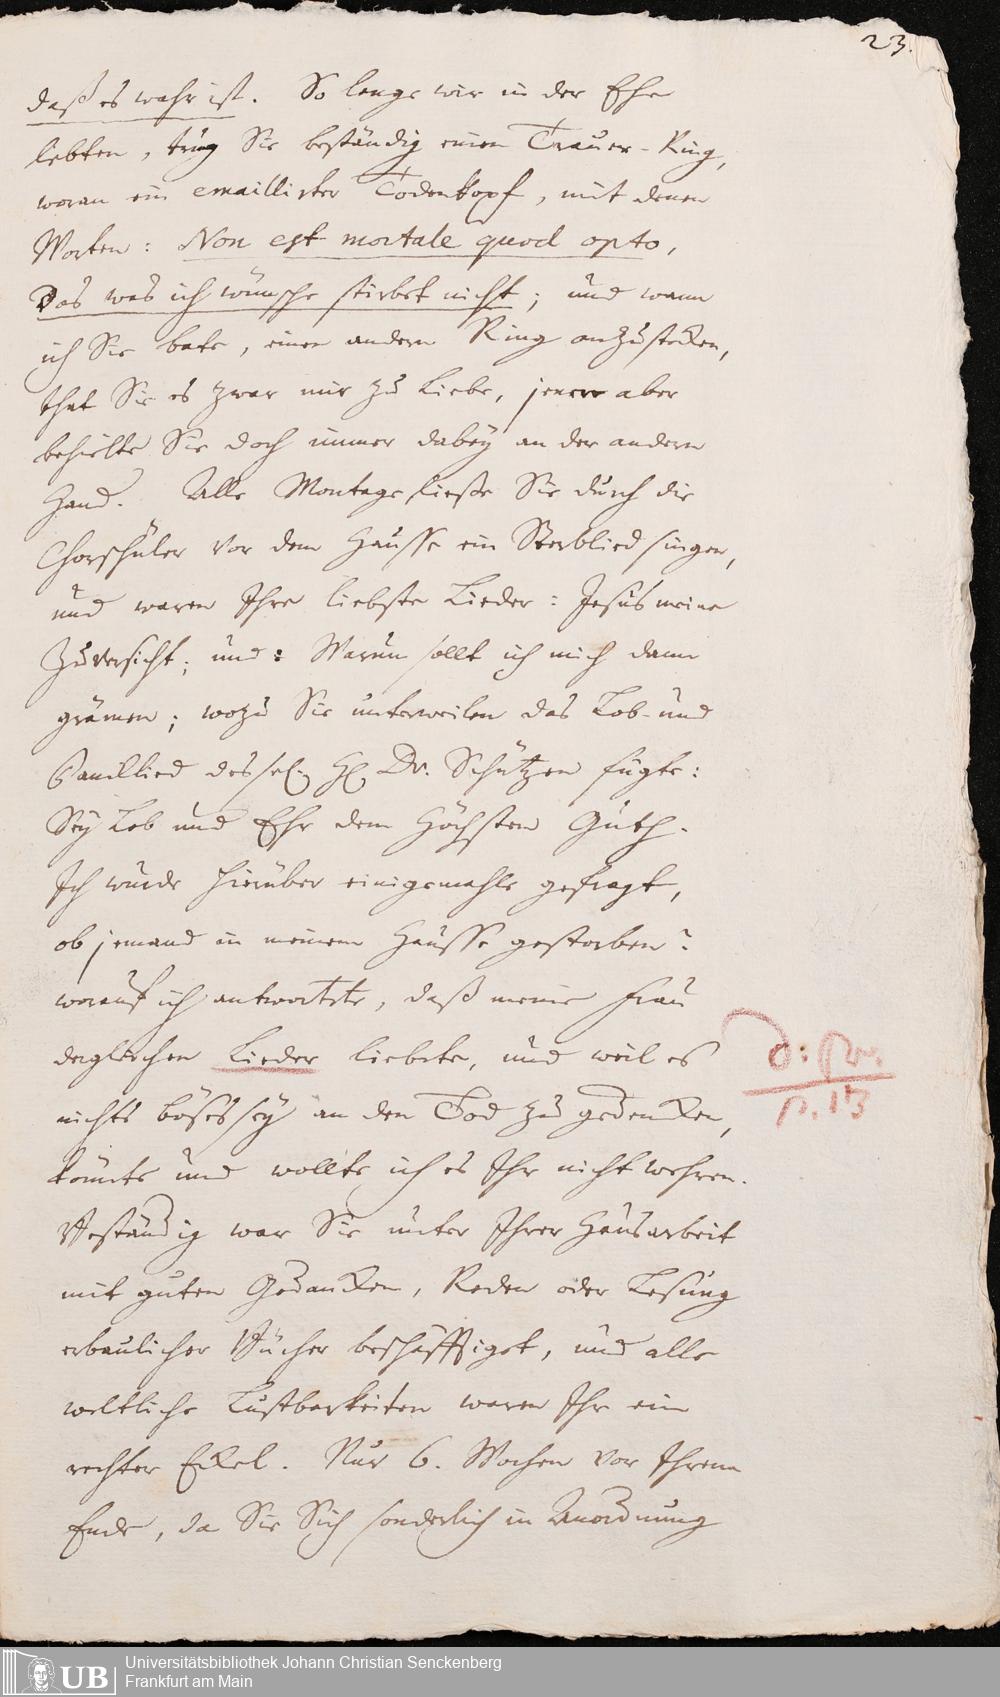 23.
daß es wahr ist. So lange wir in der Ehe
lebten, trug Sie beständig einen Trauer-Ring,
woran ein emaillirter Todenkopf, mit denen
Worten: Non est mortale quod opto,
Das was ich wünsche stirbet nicht; und wann
ich Sie bate, einen andern Ring anzustecken,
that Sie es zwar mir zu Liebe, jenen aber
behielte Sie doch immer dabey an der andern
Hand. Alle Montage ließe Sie durch die
Chorschüler vor dem Hausse ein Sterblied singen,
und waren Ihre liebste Lieder: Jesus meine
Zuversicht; und: Warum sollt ich mich dann
grämen; wozu Sie unterweilen das Lob- und
Dancklied des sel. H. Dr. Schützen fügte:
Sey Lob und Ehr dem Höchsten Guth.
Ich wurde hierüber einigemahle gefragt,
ob jemand in meinem Hausse gestorben?
worauf ich antwortete, daß meine Frau
dergleichen Lieder liebete, und weil es
nichts böses sey an den Tod zu gedencken,
könnte und wollte ich es Ihr nicht wehren.
Beständig war Sie unter Ihrer Hausarbeit
mit guten Gedancken, Reden oder Lesung
erbaulicher Bücher beschäfftiget, und alle
weltliche Lustbarkeiten waren Ihr ein
rechter Eckel. Nur 6. Wochen vor Ihrem
Ende, da Sie Sich sonderlich in Anordnung
p. 13
UB
Universitätsbibliothek Johann Christian Senckenberg
Frankfurt am Main